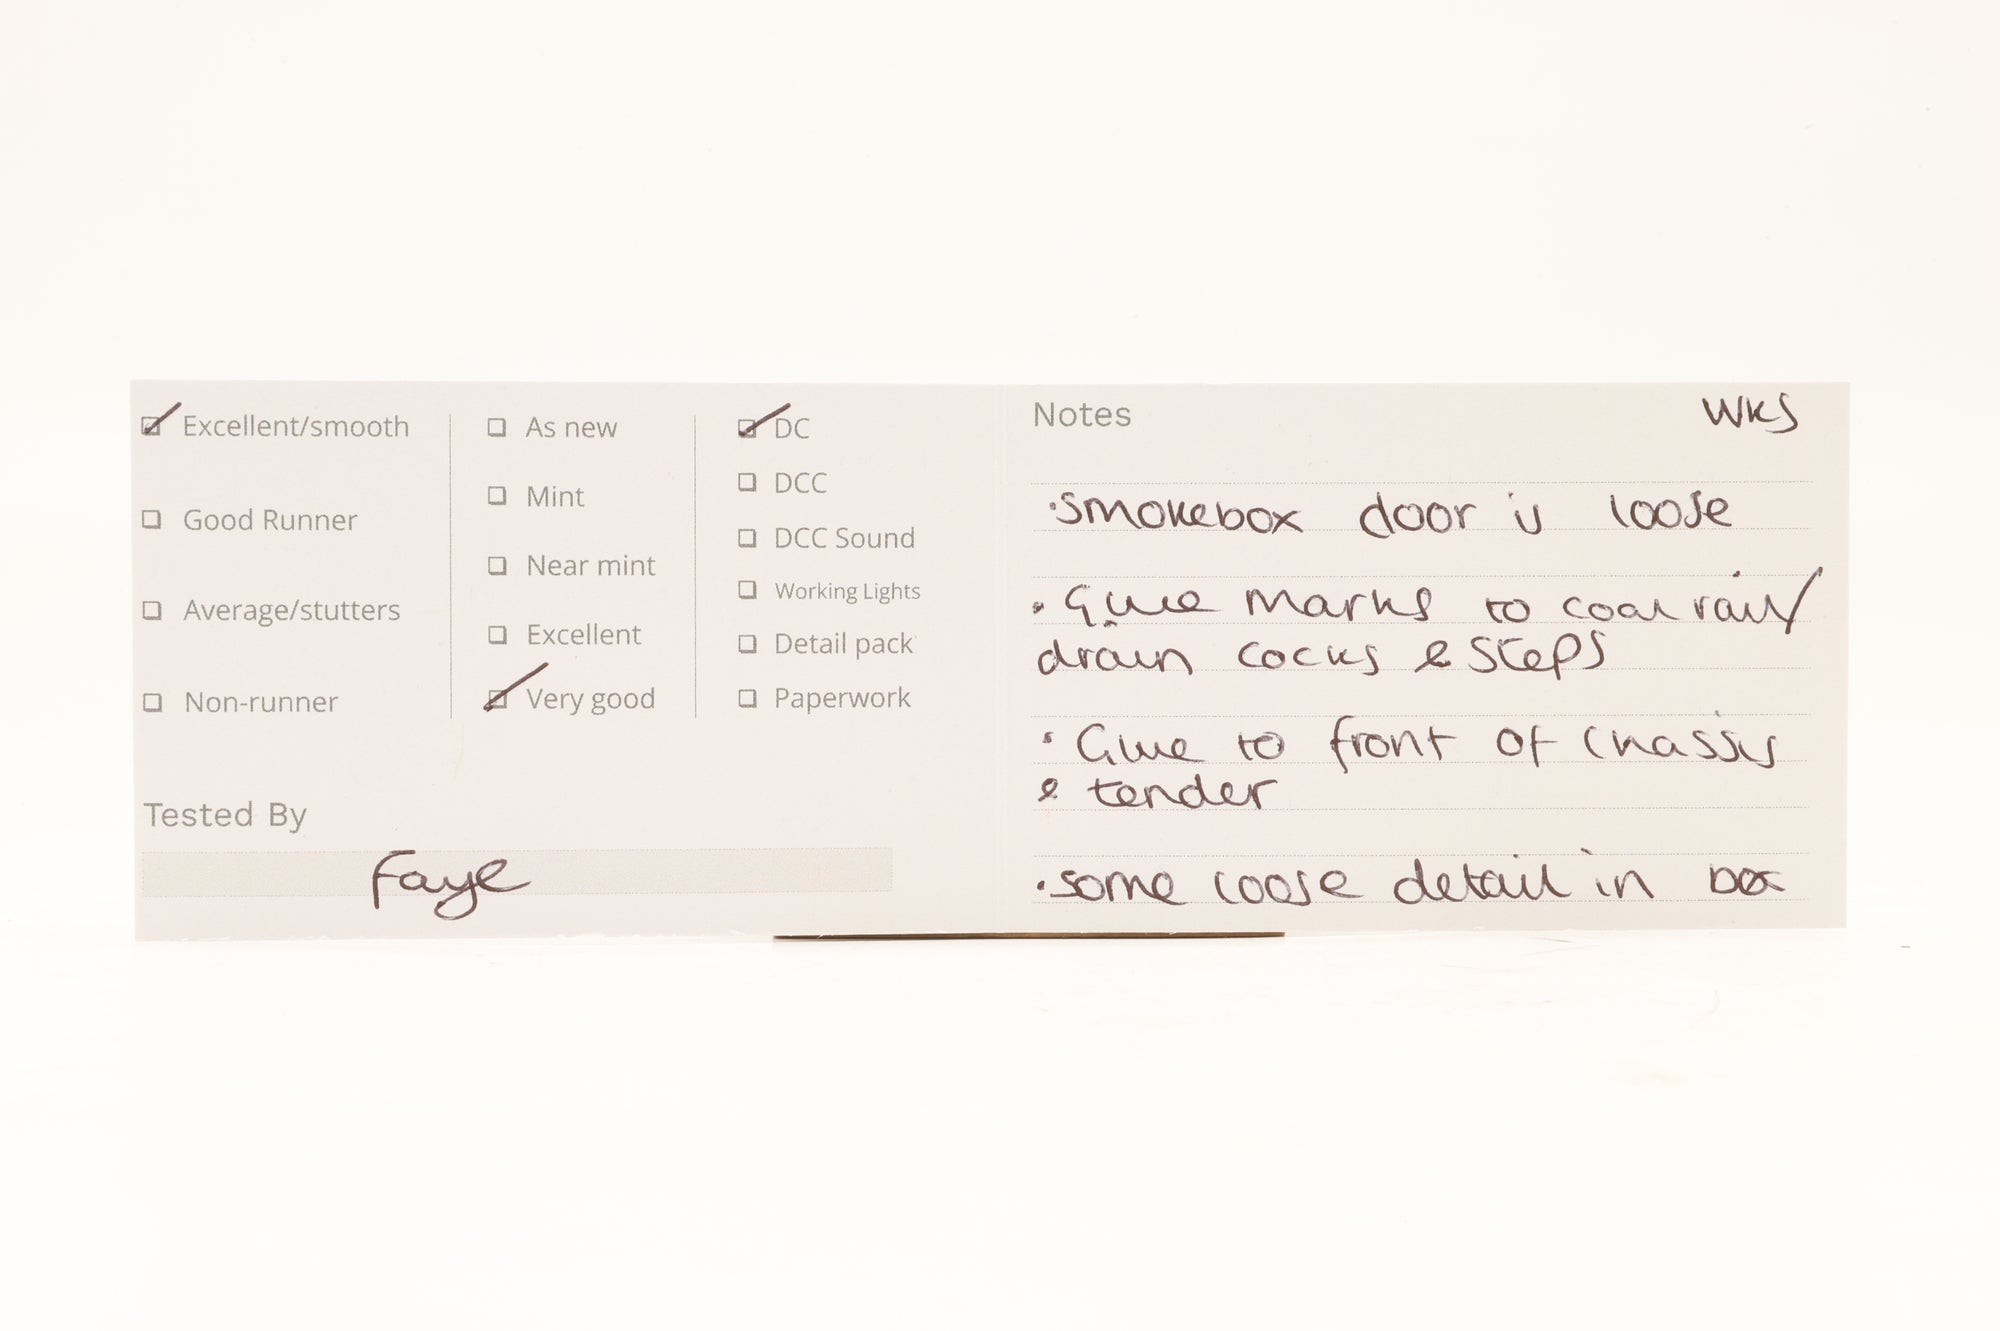 Excellent/smooth
Good Runner
Average/stutters
Non-runner
As new
Mint
Near mint
Excellent
Very good
DC
DCC
DCC Sound
Working Lights
Detail pack
Paperwork
Tested By
Faye
Notes
WKS
• Smokebox door is loose
• Glue marks to coal rail/
drain cocks & steps
• Glue to front of chassis
& tender
• some loose detail in box